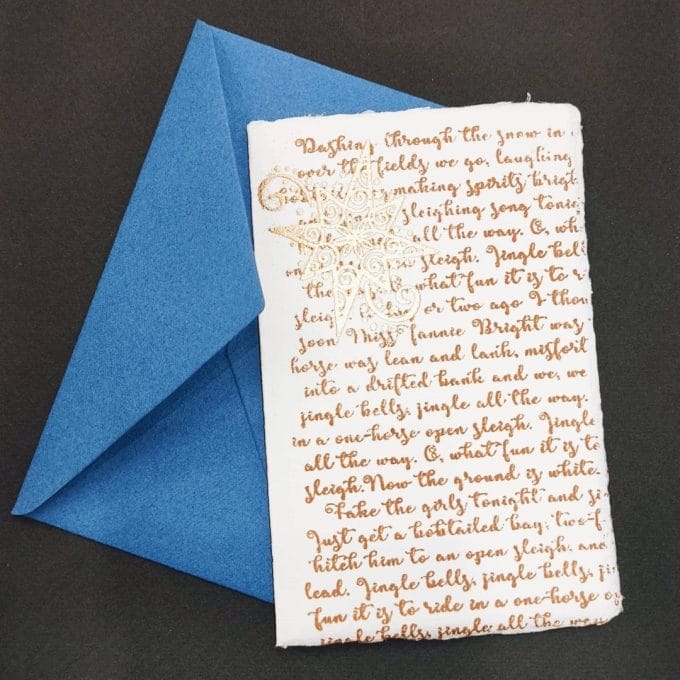 Dashing through the snow in
over the fields we go, laughing
making spirits brigh
sleighing song toni
all the way. O, wh
sleigh. Jingle bell
the what fun it is to r
sleigh or two ago I thou
soon Miss Fannie Bright was
horse was lean and lank, misfort
into a drifted bank and we, we
jingle bells, jingle all the way.
in a one-horse open sleigh. Jingle
all the way. O, what fun it is to
sleigh. Now the ground is white
Take the girls tonight and si
Just get a bobtailed bay, two-f
hitch him to an open sleigh, and
lead. Jingle bells, jingle bells, ji
fun it is to ride in a one-horse op
jingle bells, jingle all the way